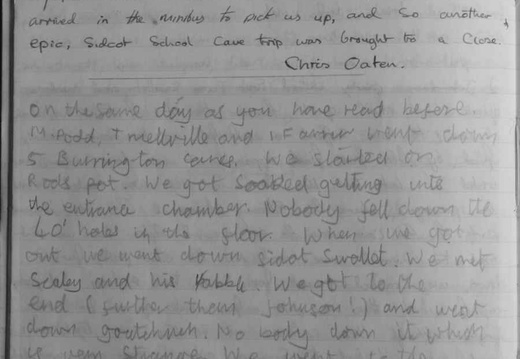 arrived in the minibus to pick us up, and so another
epic, Sidcot School Cave trip was brought to a close.
Chris Oaten.
On the same day as you have read before
M. Podd, T mellville and I Farrer went down
5 Burrington caves. We started on
Rods pot. We got soaked getting into
the entrance chamber. Nobody fell down the
40' holes in the floor. When we got
out we went down sidcot swallet. We met
Sealey and his rabble. We got to the
end (further them Johnson!) and went
down goatchurch. No body down it which
is very strange. We went